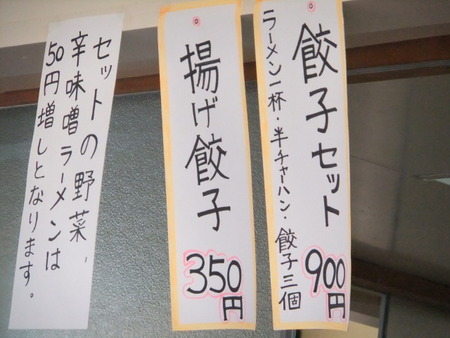 餃子セット
ラーメン一杯・半チャーハン・餃子三個
900円
揚げ餃子
350円
セットの野菜、
辛味噌ラーメンは
50円増しとなります。